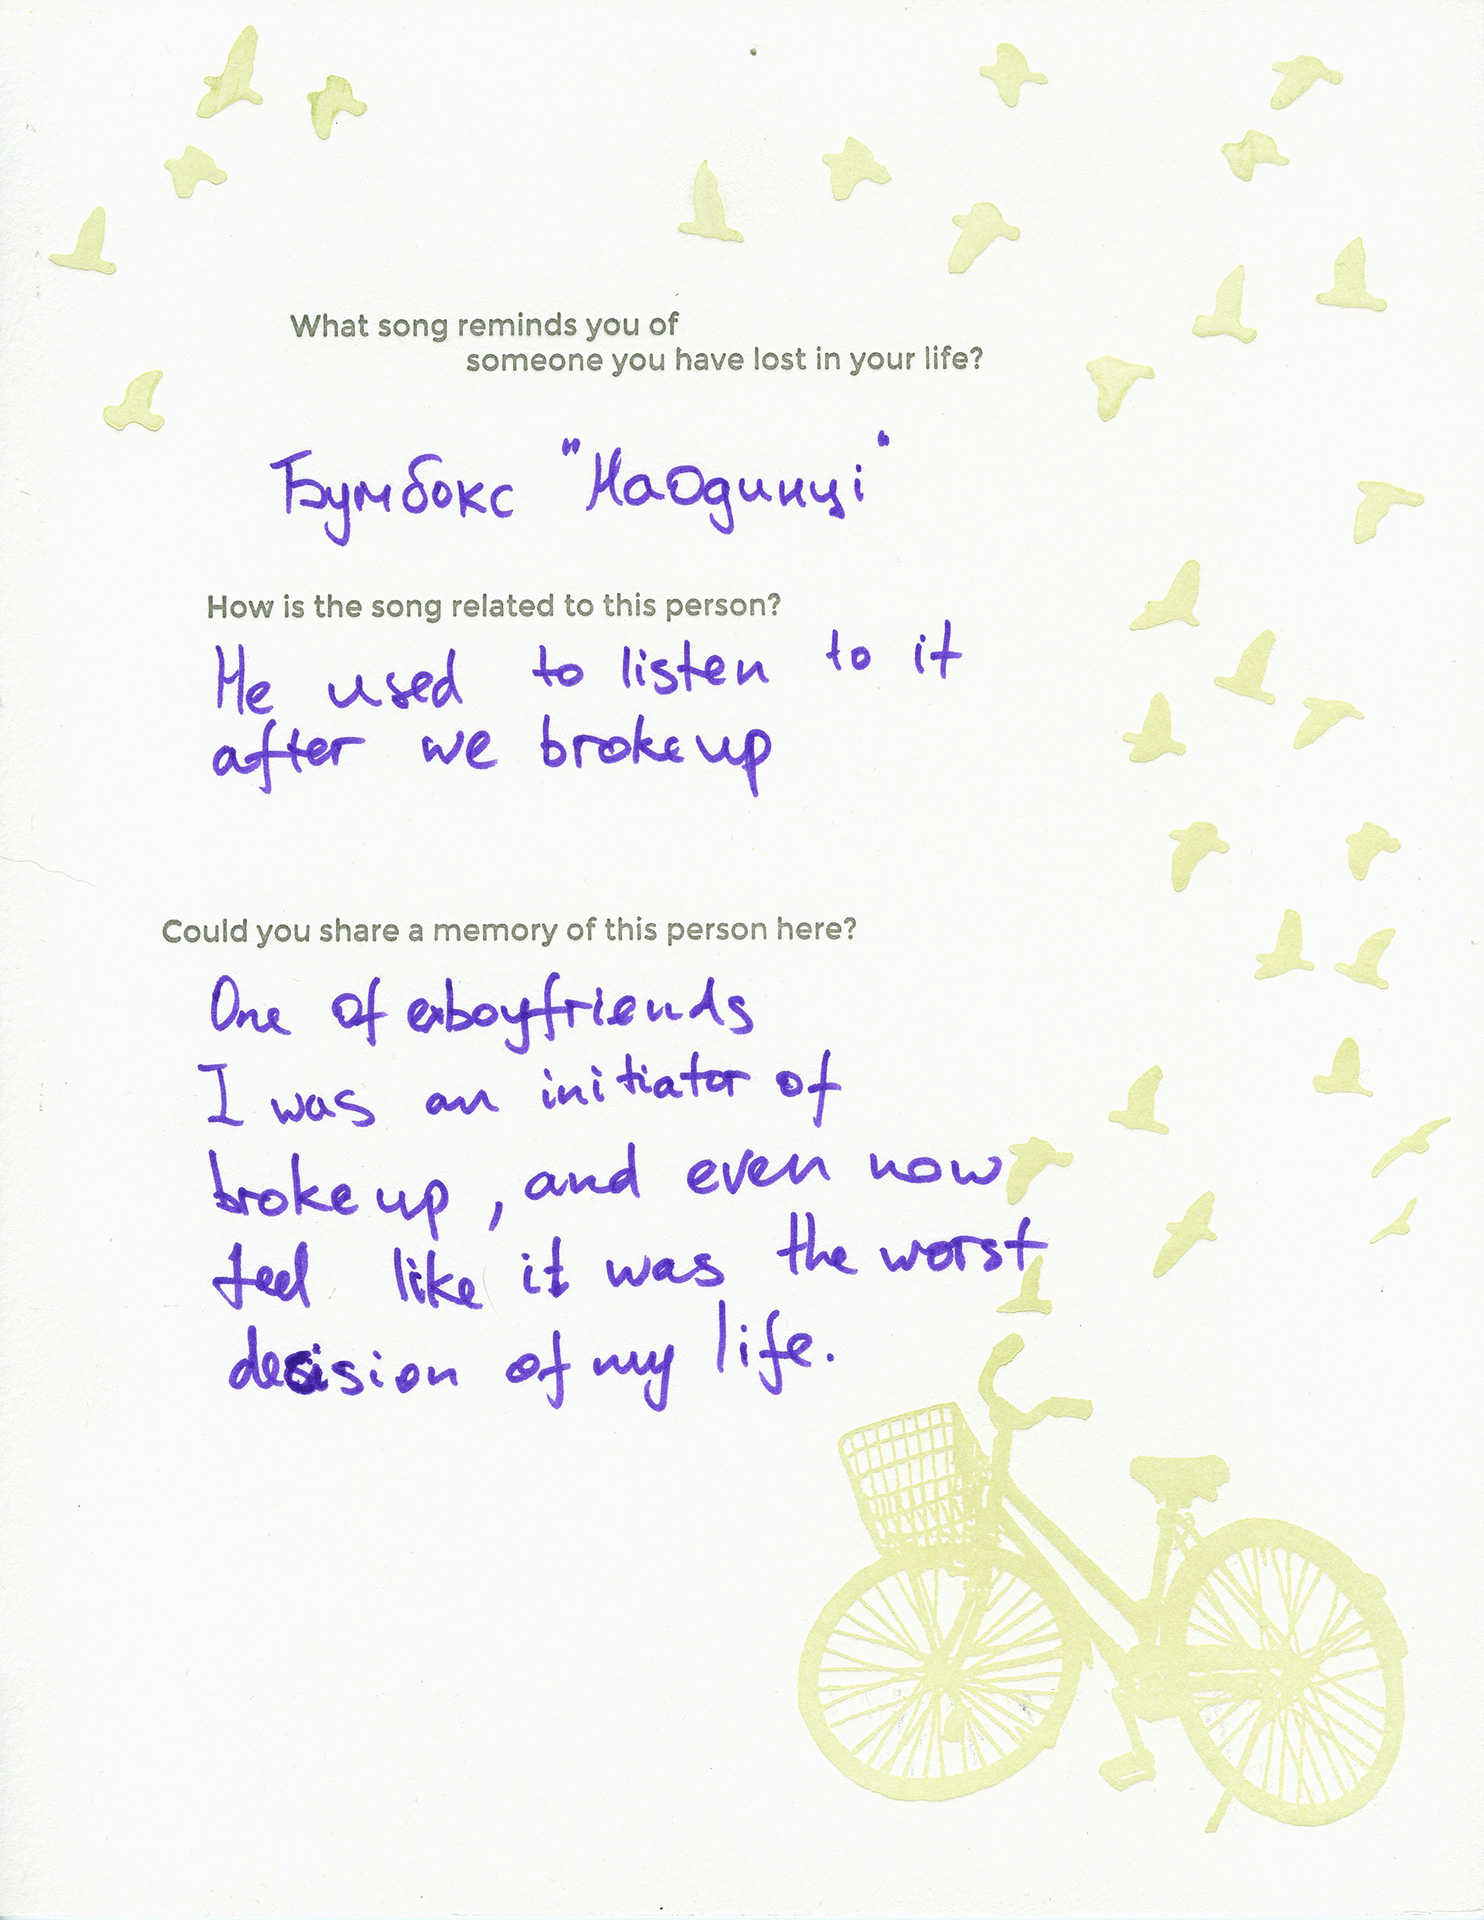 What song reminds you of
someone you have lost in your life?
Бумбокс "Наодинці"
How is the song related to this person?
He used to listen to it
after we broke up
Could you share a memory of this person here?
One of exboyfriends
I was an initiator of
broke up, and even now
feel like it was the worst
decision of my life.